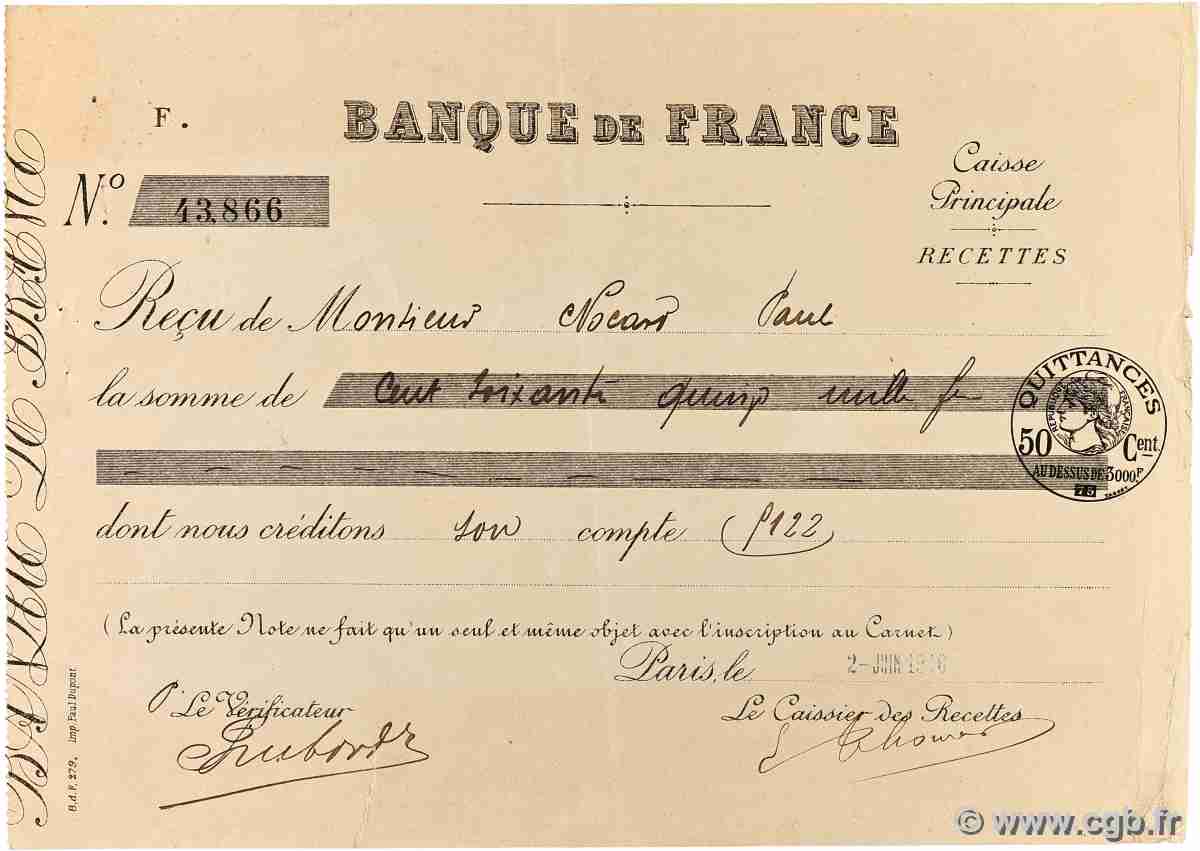 F.
BANQUE DE FRANCE
Nº. 43,866
Caisse
Principale
RECETTES
Reçu de Monsieur Nocard Paul
la somme de Cent soixante quinze mille f
QUITTANCES
RÉPUBLIQUE FRANÇAISE
50 Cent.
AU DESSUS DE 3000F
75
dont nous créditons son compte
(La présente Note ne fait qu'un seul et même objet avec l'inscription au Carnet)
Paris, le 2-JUIN
Le Vérificateur
Le Caissier des Recettes
B.d.F. 279. Imp. Paul Dupont
BANQUE DE FRANCE
© www.cgb.fr